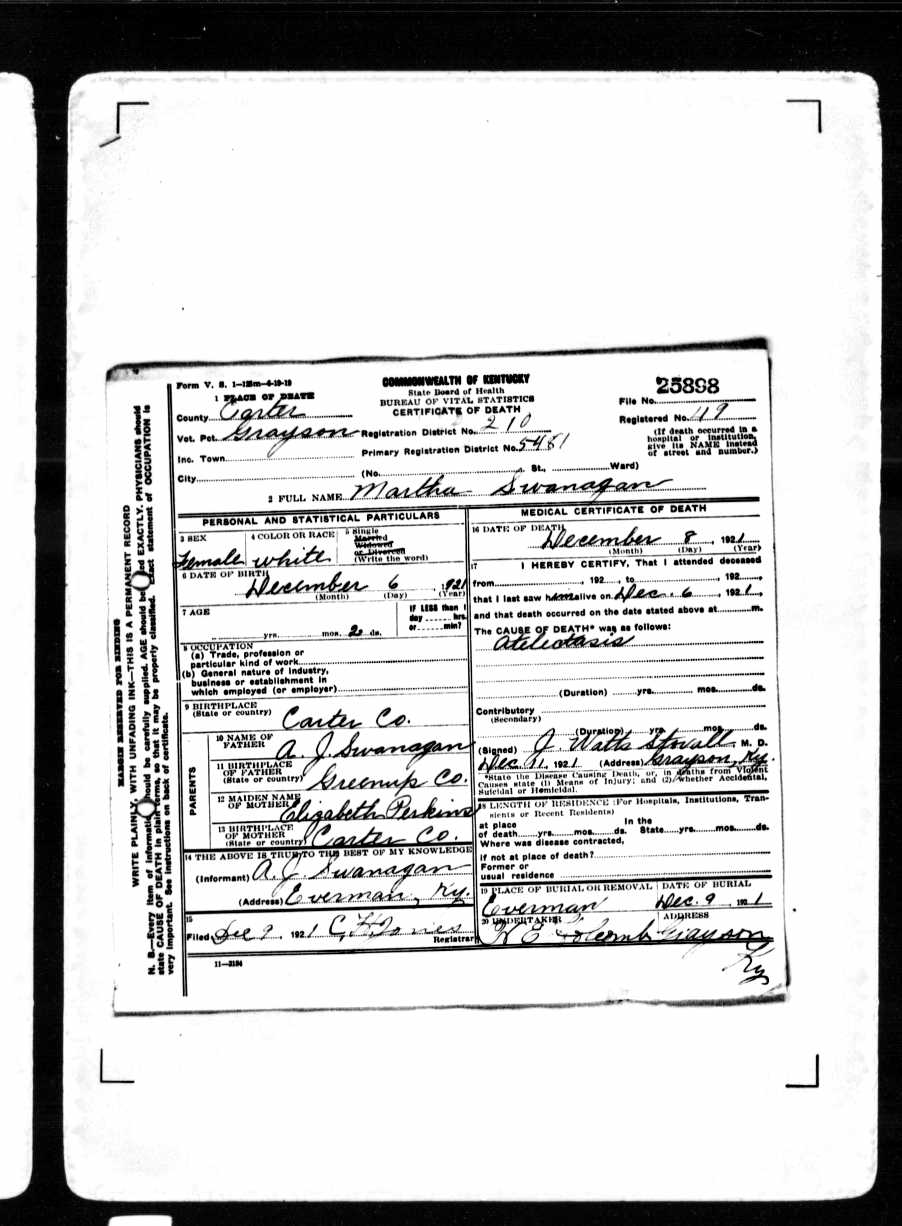 Form V. S. 1—125m—6-19-19
COMMONWEALTH OF KENTUCKY
State Board of Health
BUREAU OF VITAL STATISTICS
CERTIFICATE OF DEATH
File No. 25898
Registered No. 49
(If death occurred in a hospital or institution, give its NAME instead of street and number.)
1 PLACE OF DEATH
County Carter
Vot. Pct. Grayson Registration District No. 210
Inc. Town Primary Registration District No. 5481
City (No. St., Ward)
2 FULL NAME Martha Swanagan
PERSONAL AND STATISTICAL PARTICULARS
3 SEX Female
4 COLOR OR RACE white
5 Single
Married
Widowed
or Divorced
(Write the word)
6 DATE OF BIRTH
December 6, 1921
(Month) (Day) (Year)
7 AGE
yrs. mos. 2 ds.
If LESS than 1
day hrs.
or min?
8 OCCUPATION
(a) Trade, profession or
particular kind of work
(b) General nature of industry,
business or establishment in
which employed (or employer)
9 BIRTHPLACE
(State or country) Carter Co.
PARENTS
10 NAME OF
FATHER A. J. Swanagan
11 BIRTHPLACE
OF FATHER
(State or country) Greenup Co.
12 MAIDEN NAME
OF MOTHER Elizabeth Perkins
13 BIRTHPLACE
OF MOTHER
(State or country) Carter Co.
14 THE ABOVE IS TRUE TO THE BEST OF MY KNOWLEDGE
(Informant) A. J. Swanagan
(Address) Everman, Ky.
15
Filed Dec 9, 1921 C. H. Jones
Registrar
11—3184
MEDICAL CERTIFICATE OF DEATH
16 DATE OF DEATH
December 8, 1921
(Month) (Day) (Year)
17 I HEREBY CERTIFY, That I attended deceased
from , 192 , to , 192 ,
that I last saw him alive on Dec. 6, 1921,
and that death occurred on the date stated above at m.
The CAUSE OF DEATH* was as follows:
Atelectasis
(Duration) yrs. mos. ds.
Contributory
(Secondary)
(Duration) yrs. mos. ds.
(Signed) J. Watts Stovall M. D.
Dec. 11, 1921 (Address) Grayson, Ky.
*State the Disease Causing Death, or, in deaths from Violent
Causes state (1) Means of Injury; and (2) whether Accidental,
Suicidal or Homicidal.
18 LENGTH OF RESIDENCE (For Hospitals, Institutions, Tran-
sients or Recent Residents)
At place In the
of death yrs. mos. ds. State yrs. mos. ds.
Where was disease contracted,
if not at place of death?
Former or
usual residence
19 PLACE OF BURIAL OR REMOVAL DATE OF BURIAL
Everman Dec. 9, 1921
20 UNDERTAKER ADDRESS
Grayson
Ky
MARGIN RESERVED FOR BINDING
WRITE PLAINLY, WITH UNFADING INK—THIS IS A PERMANENT RECORD
N. B.—Every item of information should be carefully supplied. AGE should be stated EXACTLY. PHYSICIANS should
state CAUSE OF DEATH in plain terms, so that it may be properly classified. Exact statement of OCCUPATION is
very important. See instructions on back of certificate.